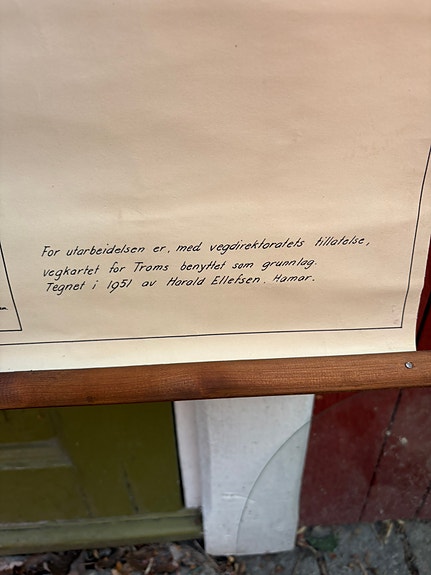 For utarbeidelsen er, med vegdirektoratets tillatelse,
vegkartet for Troms benyttet som grunnlag.
Tegnet i 1951 av Harald Ellefsen. Hamar.